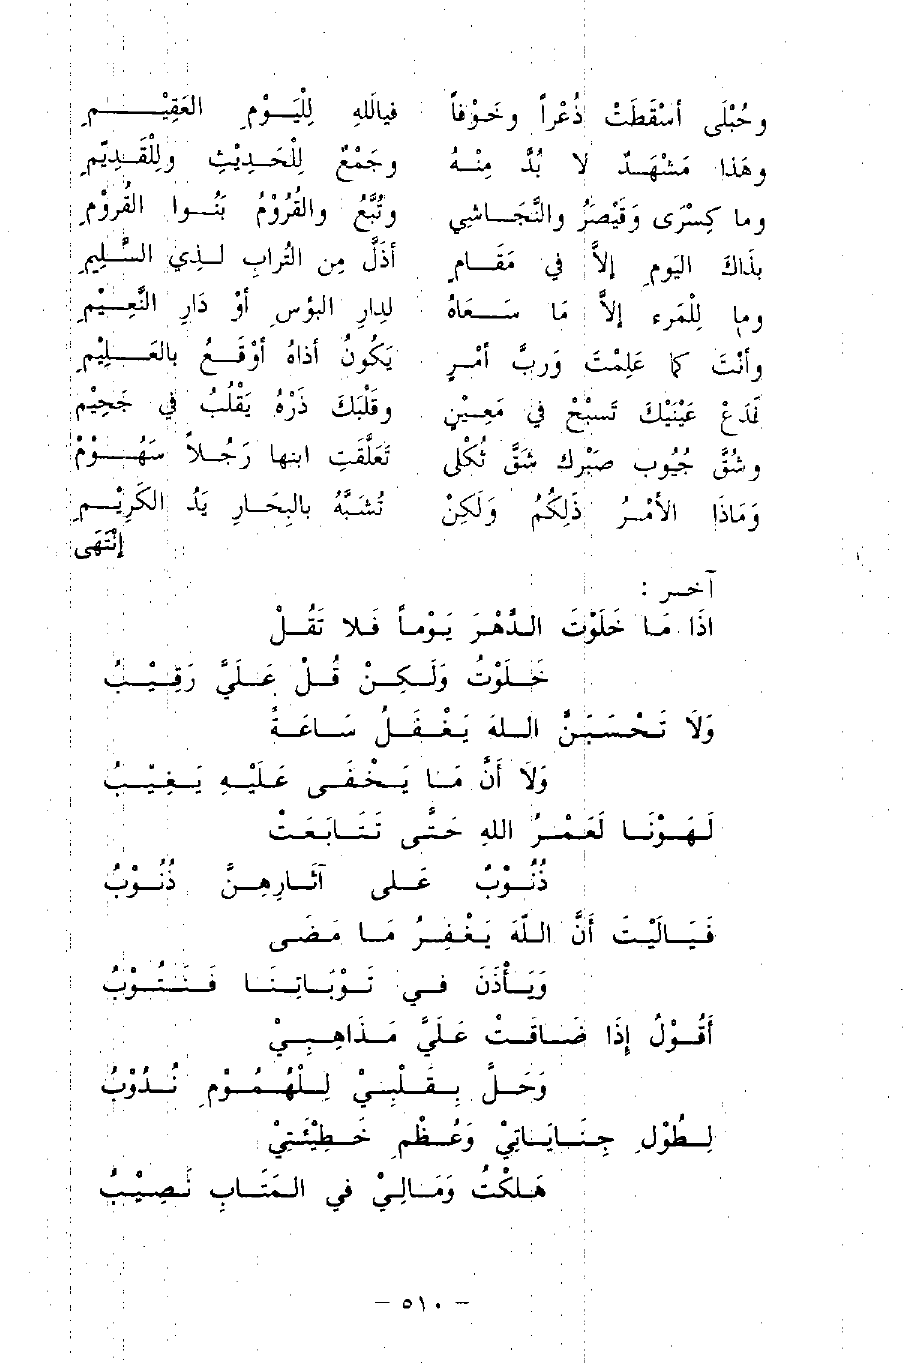 وحُبْلَى أسْقَطَتْ ذُعْراً وخَوْفاً فيالَلهِ لِلْيَوْمِ العَقِيْمِ
وهَذا مَشْهَدٌ لا بُدَّ مِنْهُ وجَمْعٌ لِلْحَدِيْثِ ولِلْقَدِيْمِ
وما كِسْرَى وَقَيْصَرُ والنَّجَاشِي وتُبَّعُ والقُرُوْمُ بَنُوا القُروْمِ
بذَاكَ اليَومِ إلاَّ في مَقَامِ أذَلَّ مِن التُرابِ لذِي السَّلِيمِ
وما لِلْمَرءِ إلاَّ مَا سَعَاهُ لدِارِ البؤسِ أوْ دَارِ النَّعِيْمِ
وأنْتَ كما عَلِمْتَ وَربَّ أمْرٍ يَكُونُ أذاهُ أوْقَعُ بالعَلِيْمِ
فَدَعْ عَيْنَيْكَ تَسبْحْ في مَعِيْنٍ وقَلْبَكَ ذَرْهُ يَقْلُبُ في جَحِيْمِ
وشُقَّ جُيُوب صَبْرِك شَقَّ ثَكْلى تَعَلَّقَتِ ابنها رَجُلاً سَهُوْمْ
وَمَاذا الأمْرُ ذَلِكُمُ وَلَكِنْ تُشَبَّهُ بالبِحَارِ يَدُ الكَرِيْمِ
إنْتَهَى
آخر :
اذَا مَا خَلَوْتَ الدَّهْرَ يَوْماً فَلا تَقُلْ
خَلَوْتُ وَلَكِنْ قُلْ عَلَيَّ رَقِيْبُ
وَلاَ تَحْسَبَنَّ اللهَ يَغْفَلُ سَاعَةً
وَلاَ أَنَّ مَا يَخْفَى عَلَيْهِ يَغِيْبُ
لَهَوْنَا لَعَمْرُ اللهِ حَتَّى تَتَابَعَتْ
ذُنُوْبٌ عَلى آثَارِهِنَّ ذُنُوْبُ
فَيَالَيْتَ أَنَّ اللّهَ يَغْفِرُ مَا مَضَى
وَيَأْذَنَ في تَوْبَاتِنَا فَنَتُوْبُ
أَقُوْلُ إِذَا ضَاقَتْ عَلَيَّ مَذَاهِبِيْ
وَحَلَّ بِقَلْبِيْ لِلْهُمُوْمِ نُدُوْبُ
لِطُوْلِ جِنَايَاتِيْ وَعُظْمِ خَطِيْئَتِيْ
هَلكْتُ وَمَالِيْ في المَتَابِ نَصِيْبُ
— ٥١٠ —